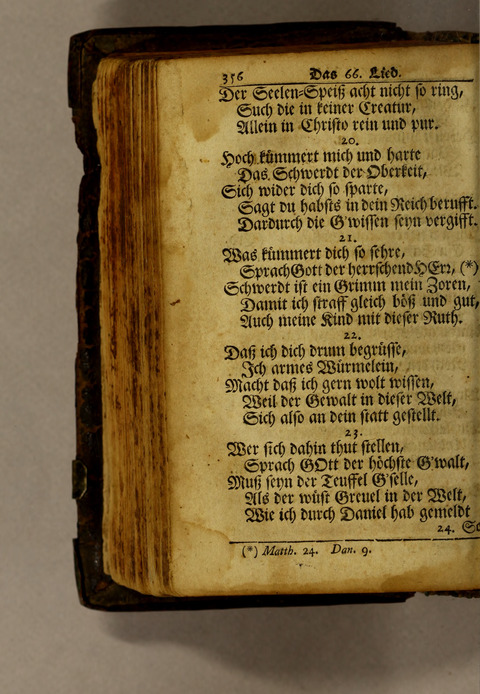 356 Das 66. Lied.
Der Seelen-Speiß acht nicht so ring,
Such die in keiner Creatur,
Allein in Christo rein und pur.
20.
Hoch kümmert mich und harte
Das Schwerdt der Oberkeit,
Sich wider dich so sparte,
Sagt du habsts in dein Reich berufft.
Dardurch die G'wissen seyn vergifft.
21.
Was kümmert dich so sehre,
Sprach Gott der herrschend HErr, (*)
Schwerdt ist ein Grimm mein Zoren,
Damit ich straff gleich böß und gut,
Auch meine Kind mit dieser Ruth.
22.
Daß ich dich drum begrüsse,
Ich armes Würmelein,
Macht daß ich gern wolt wissen,
Weil der Gewalt in dieser Welt,
Sich also an dein statt gestellt.
23.
Wer sich dahin thut stellen,
Sprach GOtt der höchste G'walt,
Muß seyn der Teuffel G'selle,
Als der wüst Greuel in der Welt,
Wie ich durch Daniel hab gemeldt
24. So
(*) Matth. 24. Dan. 9.